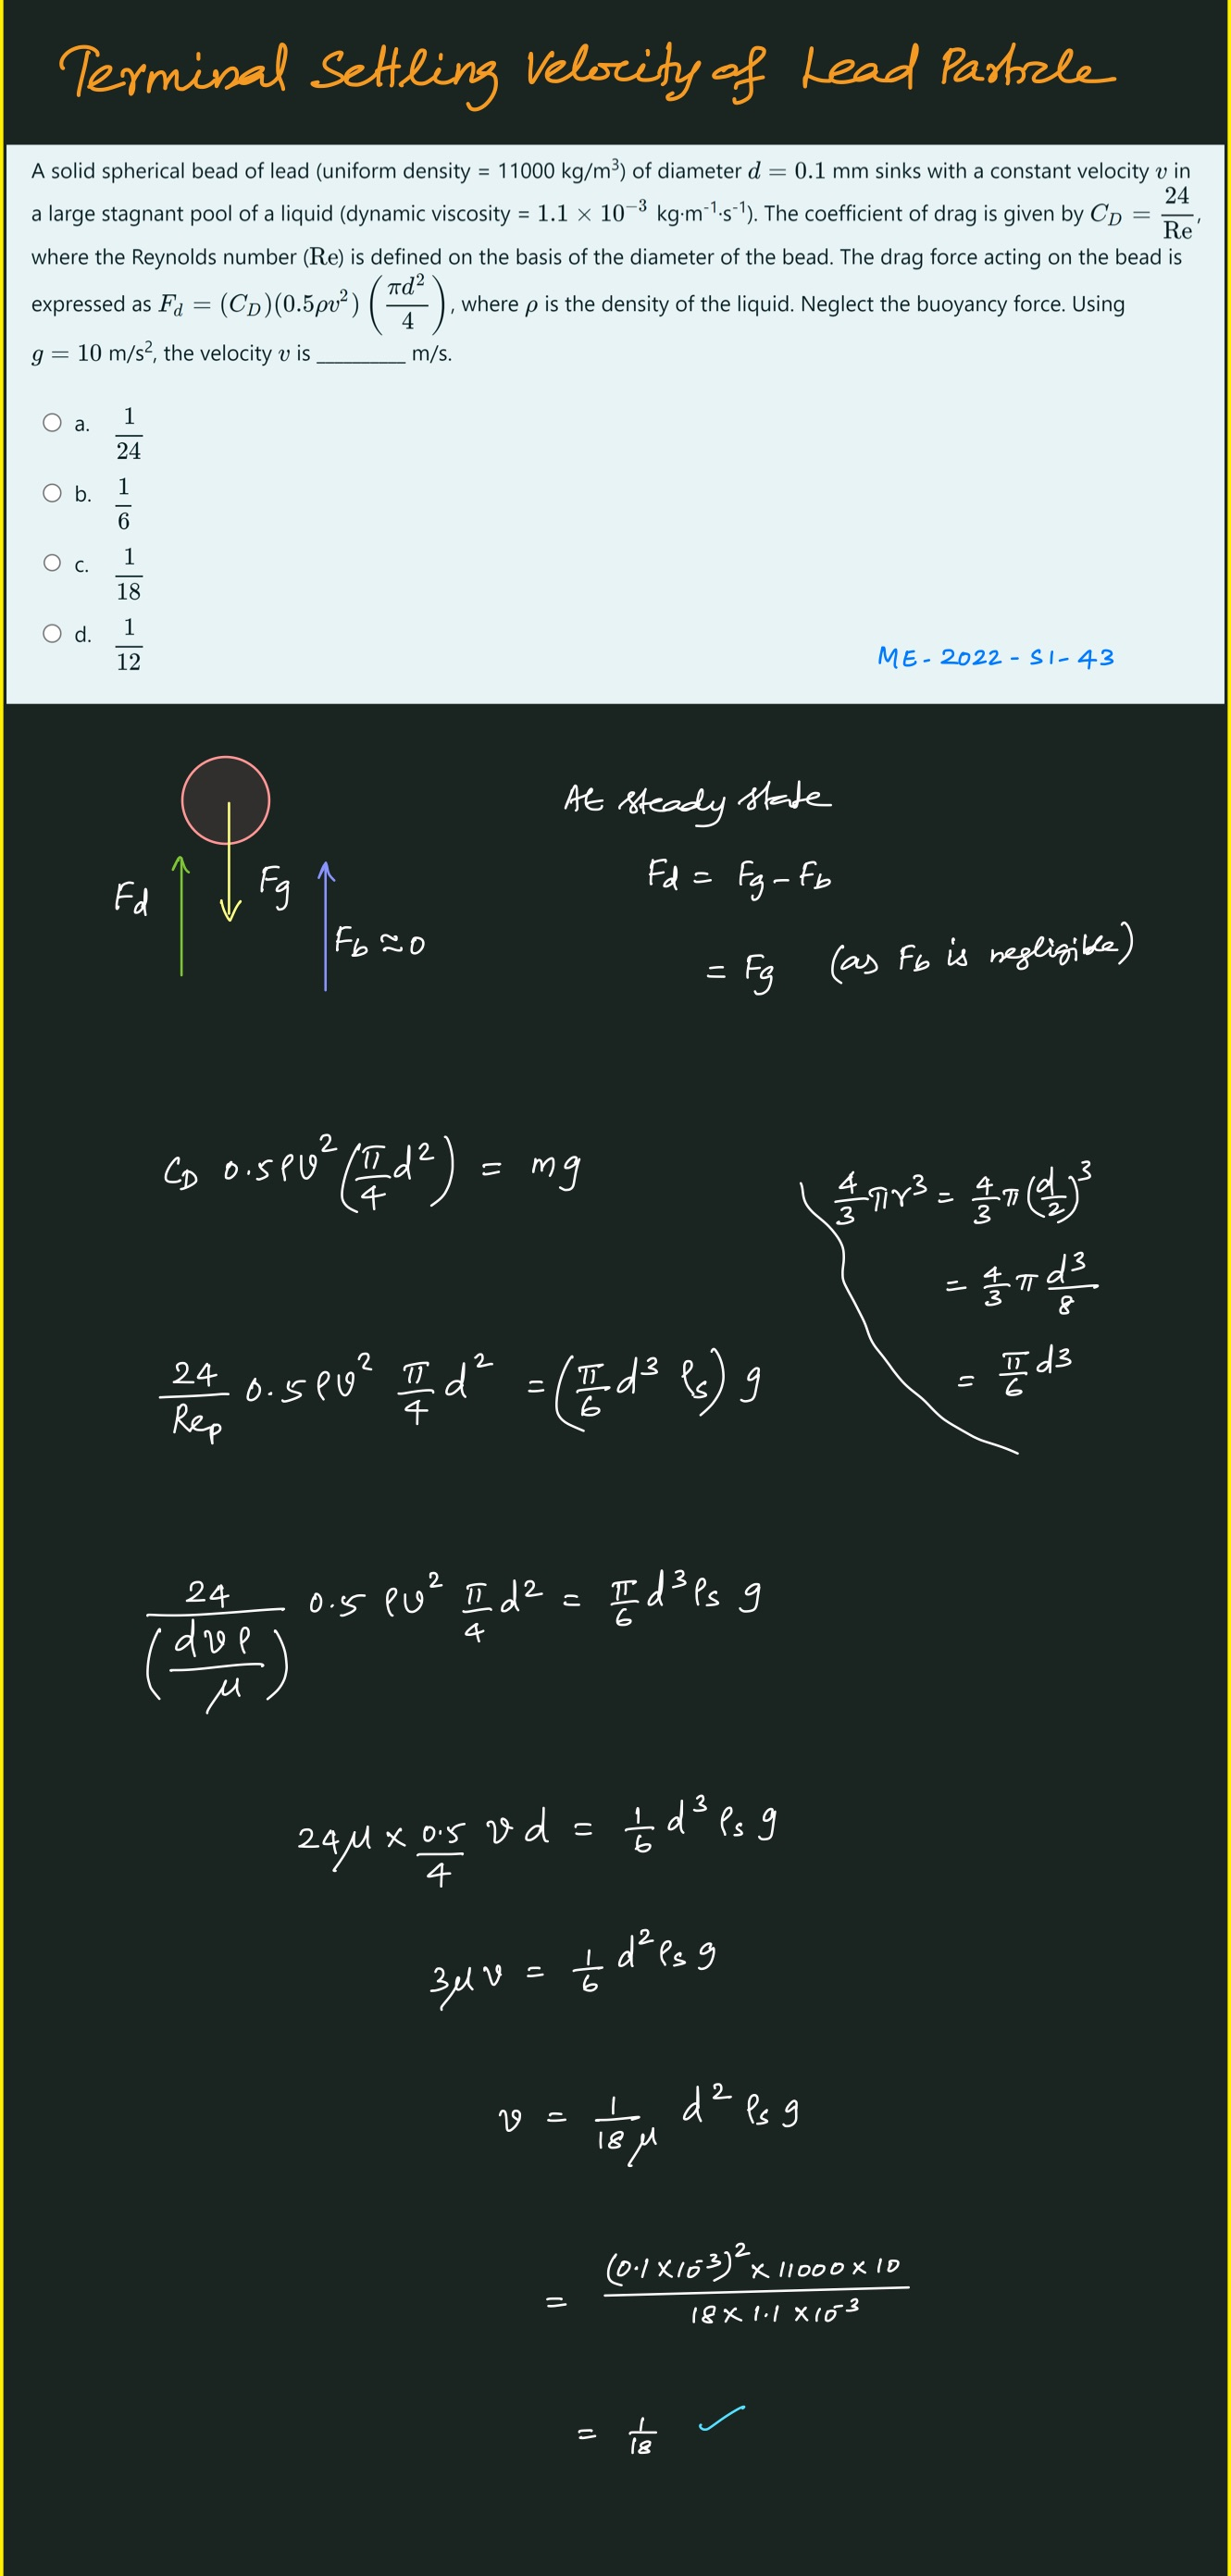 Terminal Settling Velocity of Lead Particle
A solid spherical bead of lead (uniform density = 11000 kg/m³) of diameter d = 0.1 mm sinks with a constant velocity v in
a large stagnant pool of a liquid (dynamic viscosity = 1.1 × 10⁻³ kg·m⁻¹·s⁻¹). The coefficient of drag is given by C_D = 24/Re,
where the Reynolds number (Re) is defined on the basis of the diameter of the bead. The drag force acting on the bead is
expressed as F_d = (C_D)(0.5ρv²)(πd²/4), where ρ is the density of the liquid. Neglect the buoyancy force. Using
g = 10 m/s², the velocity v is ________ m/s.
a. 1/24
b. 1/6
c. 1/18
d. 1/12
ME-2022-S1-43
At steady state
Fd = Fg - Fb
Fd Fg Fb ≈ 0
= Fg (as Fb is negligible)
C_D 0.5 ρv² (π/4 d²) = mg
4/3 πr³ = 4/3 π (d/2)³
= 4/3 π d³/8
= π/6 d³
24/Rep 0.5 ρv² π/4 d² = (π/6 d³ ρs) g
24/(dvρ/μ) 0.5 ρv² π/4 d² = π/6 d³ ρs g
24μ × 0.5/4 v d = 1/6 d³ ρs g
3μv = 1/6 d² ρs g
v = 1/18μ d² ρs g
= (0.1 × 10⁻³)² × 11000 × 10 / 18 × 1.1 × 10⁻³
= 1/18 ✓